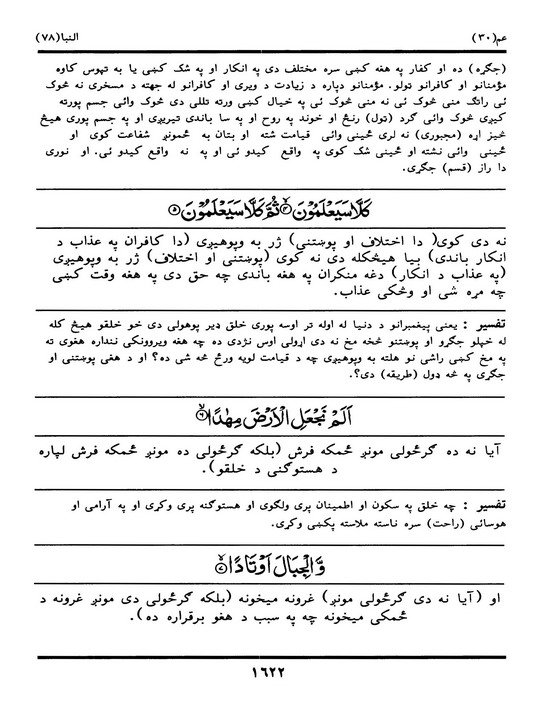 عم(٣٠) النبا(٧٨)
(جګړه) ده او کفار په هغه کښی سره مختلف دی په انکار او په شک کښی یا به تپوس کاوه
مؤمنانو او کافرانو ټولو. مؤمنانو دپاره د زیادت د ویری او کافرانو له جهته د مسخری نه څوک
ئی راتګ منی څوک ئی نه منی څوک ئی په خیال کښی ورته تللی دی څوک وائی جسم پورته
کیږی څوک وائی ګرد (ټول) رنځ او خوند په روح او په سا باندی تیریږی او په جسم پوری هیڅ
څیز اړه (مجبوری) نه لری ځینی وائی قیامت شته او بتان به ځمونږ شفاعت کوی او
ځینی وائی نشته او ځینی شک کوی په واقع کیدو ئی او په نه واقع کیدو ئی. او نوری
دا راز (قسم) جګړی.
كَلَّا سَيَعْلَمُوْنَ ۙ﴿٤﴾ ثُمَّ كَلَّا سَيَعْلَمُوْنَ ﴿٥﴾
نه دی کوی( دا اختلاف او پوښتنی) ژر به وپوهیږی (دا کافران په عذاب د
انکار باندی) بیا هیڅکله دی نه کوی (پوښتنی او اختلاف) ژر به وپوهیږی
(په عذاب د انکار) دغه منکران په هغه باندی چه حق دی په هغه وقت کښی
چه مړه شی او وڅکی عذاب.
تفسیر : یعنی پیغمبرانو د دنیا له اوله تر اوسه پوری خلق ډیر پوهولی دی خو خلقو هیڅ کله
له خپلو جګړو او پوښتنو څخه مخ نه دی اړولی اوس نژدی ده چه هغه ویروونکی ننداره هغوی ته
په مخ کښی راشی نو هلته به وپوهیږی چه د قیامت لویه ورځ څه شی ده؟ او د هغی پوښتنی او
جګړی په څه ډول (طریقه) دی؟.
اَلَمْ نَجْعَلِ الْاَرْضَ مِهٰدًا ۙ﴿٦﴾
آیا نه ده ګرځولی مونږ ځمکه فرش (بلکه ګرځولی ده مونږ ځمکه فرش لپاره
د هستوګنی د خلقو).
تفسیر : چه خلق په سکون او اطمینان پری ولګوی او هستوګنه پری وکړی او په آرامی او
هوسائی (راحت) سره ناسته ملاسته پکښی وکړی.
وَّالْجِبَالَ اَوْتَادًا ۙ﴿٧﴾
او (آیا نه دی ګرځولی مونږ) غرونه میخونه (بلکه ګرځولی دی مونږ غرونه د
ځمکی میخونه چه په سبب د هغو برقراره ده).
١٦٢٢